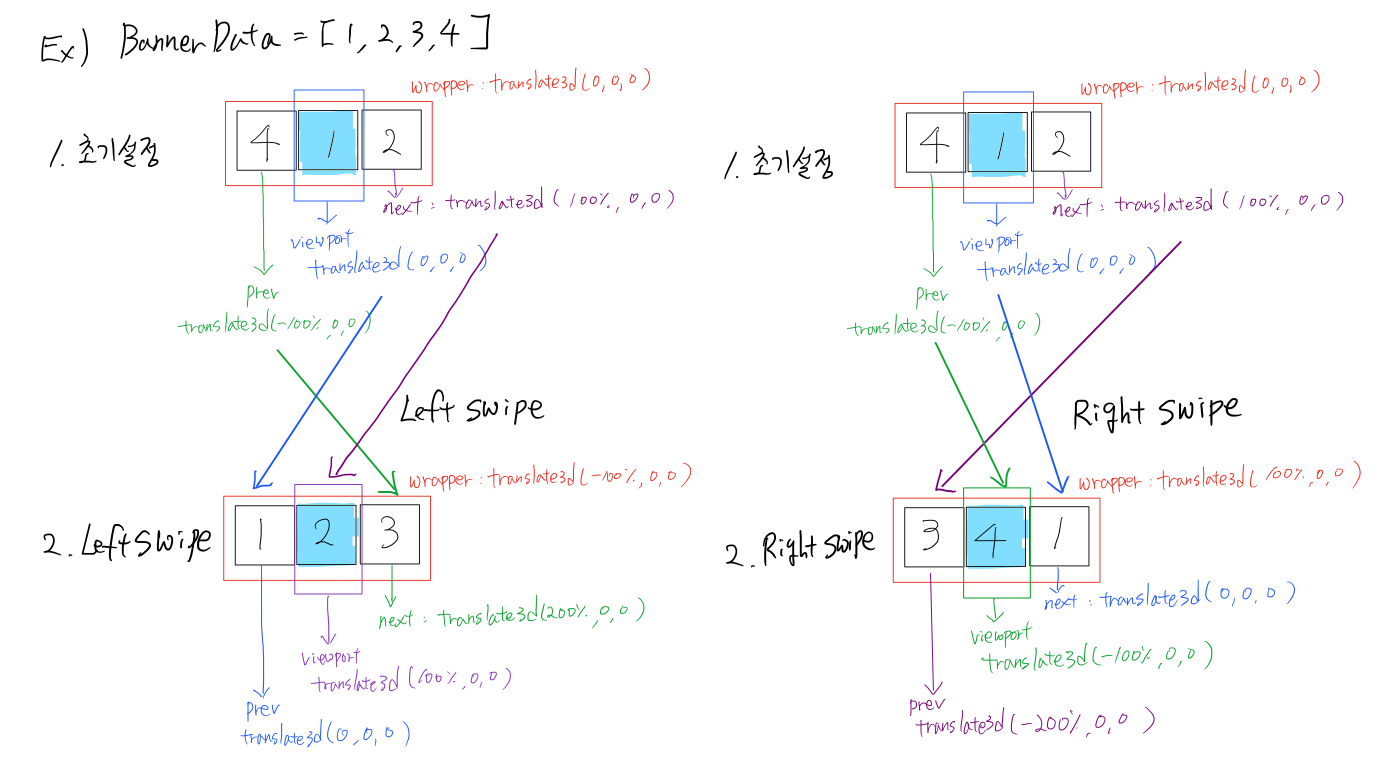 Ex) BannerData = [1, 2, 3, 4]
wrapper : translate3d(0, 0, 0)
1. 초기설정
4 1 2
next : translate3d(100%, 0, 0)
viewport
translate3d(0, 0, 0)
prev
translate3d(-100%, 0, 0)
Left swipe
wrapper : translate3d(-100%, 0, 0)
2. Left swipe
1 2 3
next : translate3d(200%, 0, 0)
viewport
translate3d(100%, 0, 0)
prev
translate3d(0, 0, 0)
wrapper : translate3d(0, 0, 0)
1. 초기설정
4 1 2
next : translate3d(100%, 0, 0)
viewport
translate3d(0, 0, 0)
prev
translate3d(-100%, 0, 0)
Right swipe
wrapper : translate3d(100%, 0, 0)
2. Right swipe
3 4 1
next : translate3d(0, 0, 0)
viewport
translate3d(-100%, 0, 0)
prev
translate3d(-200%, 0, 0)